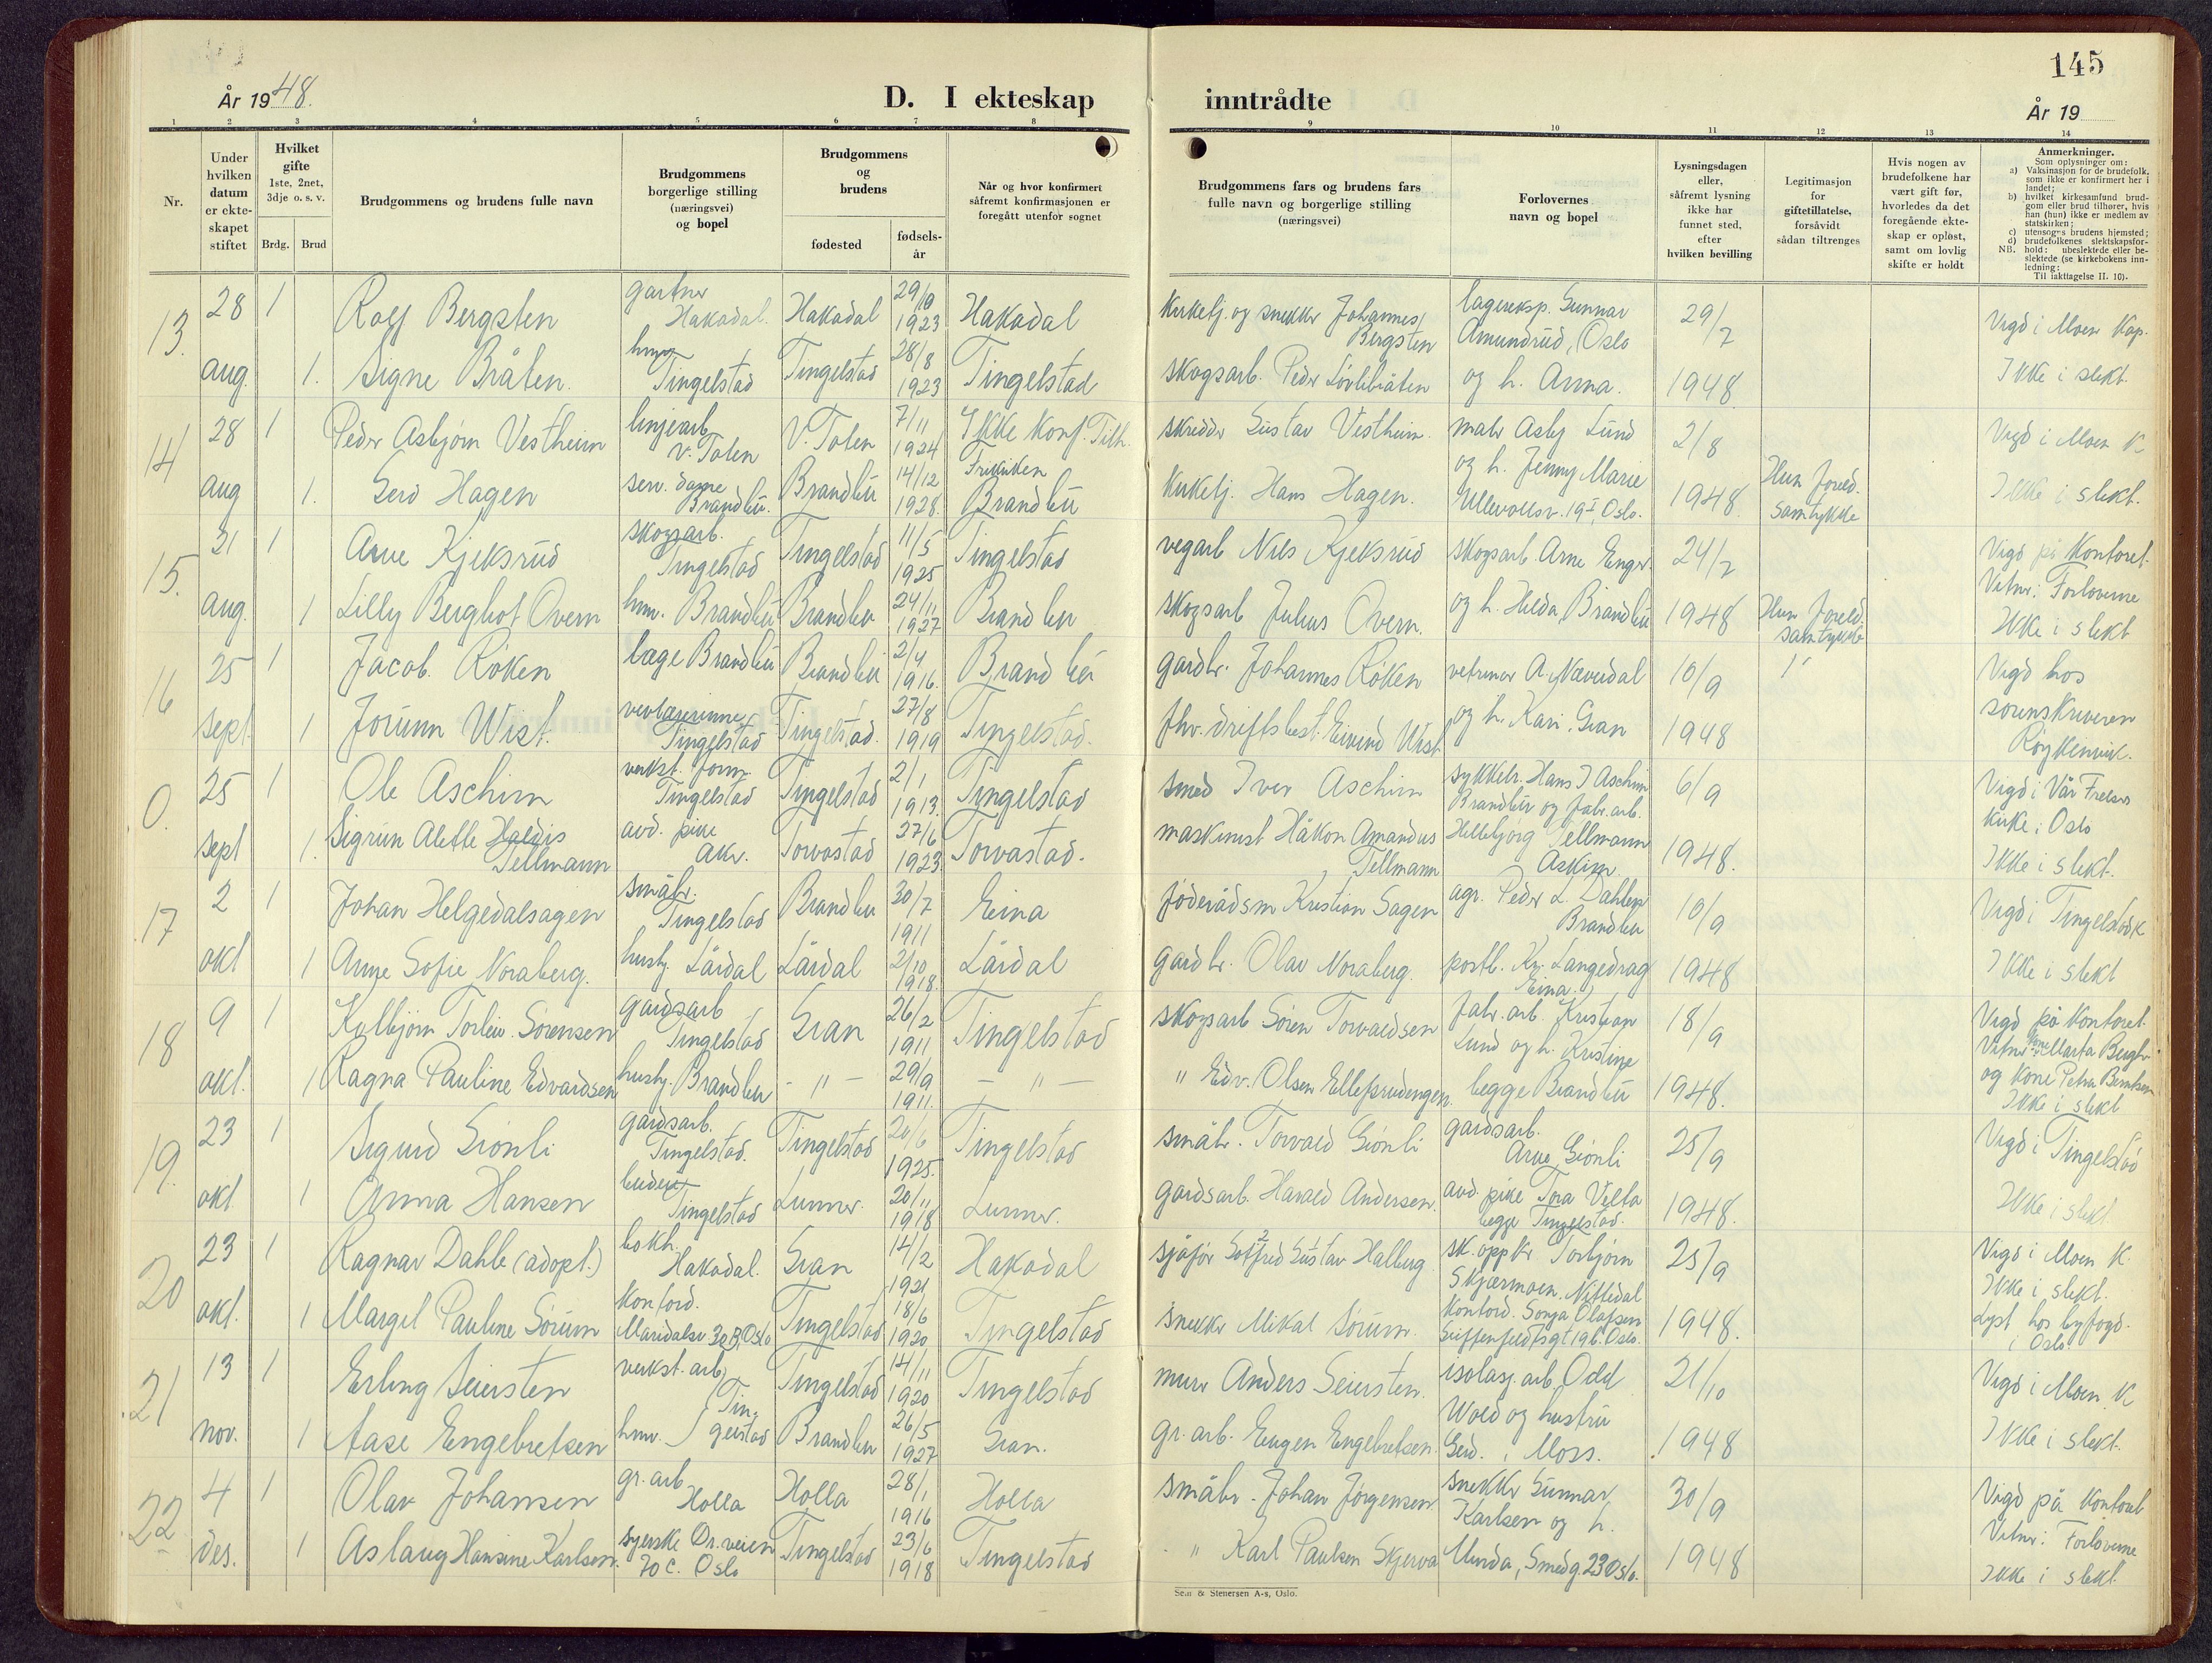 145
År 1948.
D. I ekteskap inntrådte
År 19
1 2 3 4 5 6 7 8 9 10 11 12 13 14
Nr.
Under hvilken datum er ekte- skapet stiftet
Hvilket gifte 1ste, 2net, 3dje o. s. v.
Brdg. Brud
Brudgommens og brudens fulle navn
Brudgommens borgerlige stilling (næringsvei) og bopel
Brudgommens og brudens
fødested
fødsels- år
Når og hvor konfirmert såfremt konfirmasjonen er foregått utenfor sognet
Brudgommens fars og brudens fars fulle navn og borgerlige stilling (næringsvei)
Forlovernes navn og bopel
Lysningsdagen eller, såfremt lysning ikke har funnet sted, efter hvilken bevilling
Legitimasjon for giftetillatelse, forsåvidt sådan tiltrenges
Hvis nogen av brudefolkene har vært gift før, hvorledes da det foregående ekte- skap er opløst, samt om lovlig skifte er holdt
Anmerkninger.
Som oplysninger om:
a) Vaksinasjon for de brudefolk, som ikke er konfirmert her i landet;
b) hvilket kirkesamfund brud- gom eller brud tilhører, hvis han (hun) ikke er medlem av statskirken;
c) utensogns brudens hjemsted;
d) brudefolkenes slektskapsfor- hold: ubeslektede eller be- slektede (se kirkebokens inn- ledning:
NB. Til iakttagelse II. 10).
13. 28 1 Rolf Bergsten gartner Hakadal. Hakadal 29/10 1923 Hakadal Kirketj. og snekker Johannes Bergsten lagereksp. Gunnar Amundrud, Oslo 29/7 Vigd i Moen Kap.
aug. 1. Signe Bråten. hmv Tingelstad Tingelstad 28/8 1923 Tingelstad skogsarb. Peder Løvlibråten og h. Anna. 1948 Ikke i slekt.
14 28 1 Peder Asbjørn Vestheim linjearb V. Toten V. Toten 7/11 1924 Ikke Konf. Tilh. Frikirken skredder Gustav Vestheim. maler Asbj Lund 2/8 Vigd i Moen K
aug 1. Gerd Hagen serv. dame Brandbu. Brandbu 14/12 1928. Brandbu Kirketj. Hans Hagen. og h. Jenny Marie Ullevollsv. 19 I, Oslo. 1948 Hun foreld. samtykke Ikke i slekt.
15. 21 1 Arne Kjeksrud skogsarb. Tingelstad Tingelstad 11/5 1925 Tingelstad vegarb Nils Kjeksrud skogsarb. Arne Enger 24/7 Vigd på Kontoret.
aug. 1 Lilly Berghot Overn hmv. Brandbu Brandbu 24/11 1927 Brandbu skogsarb Julius Overn. og h. Helda, Brandbu 1948 Hun foreld. samtykke Vitner: Forloverne Ikke i slekt
16 25 1 Jacob. Røken læge Brandbu Brandbu 2/4 1916. Brandbu gardbr. Johannes Røken vetrinær A. Næverdal 10/9 Vigd hos
sept. 1 Jorunn Wist. vevlærerinne Tingelstad Tingelstad. 27/8 1919 Tingelstad. fhv. driftsbest. Eivind Wist og h. Kari. Gran 1948 sorenskriveren Røykenvik.
0. 25 1 Ole Aschim verkst. form. Tingelstad Tingelstad 2/1 1913. Tingelstad smed Iver Aschim sykkelr. Hans I Aschim Brandbu og fabr.arb. 6/9 Vigd i Vår Frelsers kirke i Oslo
sept 1. Sigrun Alette Haldis Tellmann avd. pike Akr. Torvastad 27/6 1923 Torvastad. maskinist Håkon Amandus Tellmann Hellebjørg Tellmann Askim 1948. Ikke i slekt.
17 2 1 Johan Helgedalsagen småbr. Tingelstad Brandbu 30/7 1911 Eina føderådsm Kristian Sagen agr. Peder L. Dahlen Brandbu 10/9 Vigd i Tingelstad K
okt 1 Anne Sofie Noraberg. hushj. Lärdal Lärdal 2/10 1918. Lärdal gardbr. Olav Noraberg. postb. Kr. Langedrag Eina. 1948 Ikke i slekt
18 9 1 Kolbjørn Torleiv. Sørensen gardsarb Tingelstad Gran 26/2 1911 Tingelstad skogsarb Søren Torvaldsen fabr. arb. Kristian Lund og h. Kristine 18/9 Vigd på Kontoret.
okt. 1 Ragna Pauline Edvardsen hushj. Brandbu – " – 29/9 1911. – " – " Edv. Olsen Ellefsrudengen. begge Brandbu 1948. Vitner: Marta Bergh og kone Petra Berntsen Ikke i slekt
19. 23 1 Sigurd Grönli gardsarb. Tingelstad. Tingelstad 20/6 1925. Tingelstad småbr. Torvald Grönli gardsarb. Arne Grönli 25/9 Vigd i Tingelstad
okt 1 Anna Hansen budeie Tingelstad Lunner. 20/11 1918 Lunner. gardsarb. Harald Andersen. avd. pike Tora Velta begge Tingelstad. 1948. Ikke i slekt
20 23 1 Ragnar Dahle (adopt.) bokh. Hakadal. Gran 14/2 1921 Hakadal sjåfør Sotfred Gustav Halberg sk. oppkr Torbjørn Skjærmoen. Nittedal 25/9 Vigd i Moen K.
okt. 1 Margit Pauline Sörum kontord. Maridalsv 30B, Oslo Tingelstad 18/6 1920 Tingelstad snekker Mikal Sörum. kontord. Sonja Olafsen Griffenfeldtsgt 19b. Oslo. 1948. Ikke i slekt. Lyst hos byfogd. i Oslo
21 13 1 Erling Seiersten verkst. arb. Tin- Tingelstad 14/11 1920 Tingelstad murer Anders Seiersten. isolasj. arb. Odd Wold og hustru 21/10 Vigd i Moen K
nov. 1 Aase Engebretsen hmv. gelstad Brandbu 26/5 1927 Gran. gr. arb. Eugen Engebretsen. Gerd. i Moss. 1948 Ikke i slekt.
22 4 1 Olav Johansen gr. arb Holla Holla 28/1 1916 Holla småbr. Johan Jørgensen snekker Gunnar Karlsen og h. 30/9 Vigd på Kontoret
des. 1 Aslaug Hansine Karlsen. syerske Dr. veien 70 C. Oslo Tingelstad 23/6 1918 Tingelstad " Karl Paulsen Skjerva Murda, Smedg. 23 Oslo. 1948 Vitner: Forloverne Ikke i slekt
Sem & Stenersen A-s, Oslo.